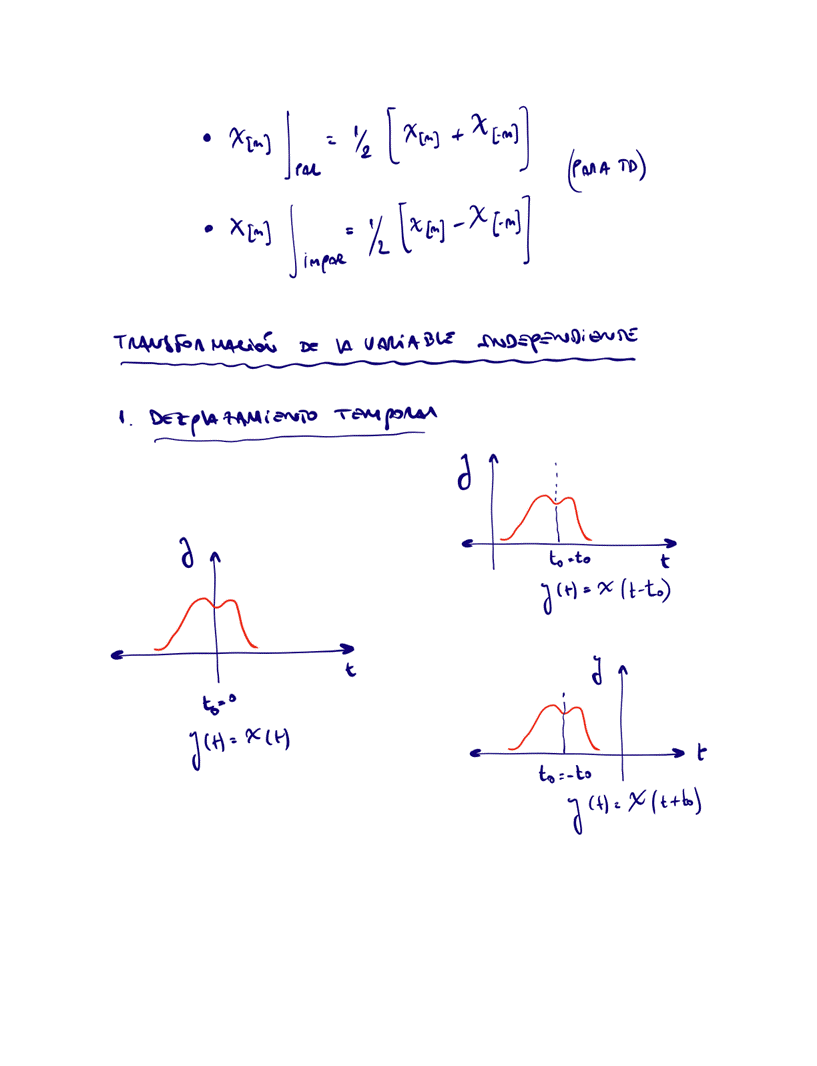 • x[n] |par = 1/2 [x[n] + x[-n]]
(PARA TD)
• x[n] |impar = 1/2 [x[n] - x[-n]]
TRANSFORMACIÓN DE LA VARIABLE INDEPENDIENTE
1. DEZPLAZAMIENTO TEMPORAL
y
t
t₀=t₀
y(t) = x(t-t₀)
y
t
t₀=0
y(t) = x(t)
y
t
t₀=-t₀
y(t) = x(t+t₀)